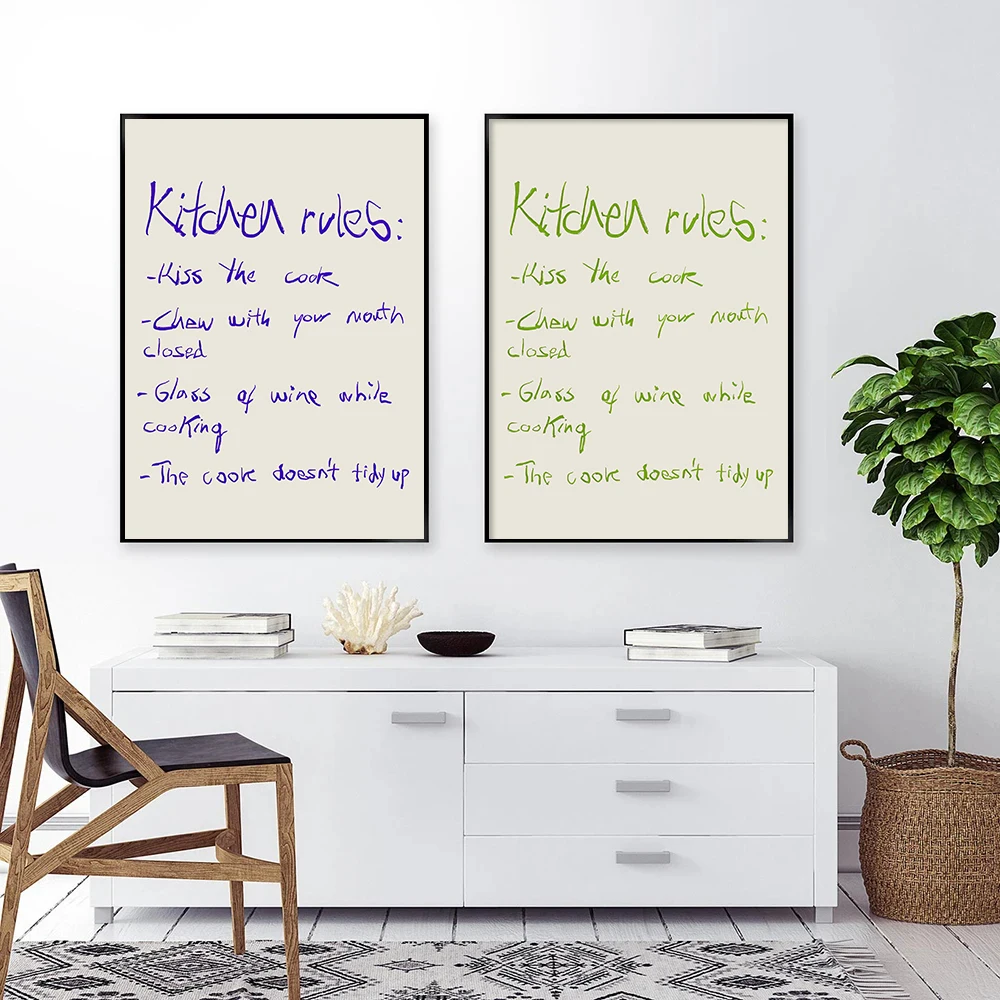 Kitchen rules:
-Kiss the cook
-Chew with your mouth
closed
-Glass of wine while
cooking
-The cook doesn't tidy up
Kitchen rules:
-Kiss the cook
-Chew with your mouth
closed
-Glass of wine while
cooking
-The cook doesn't tidy up